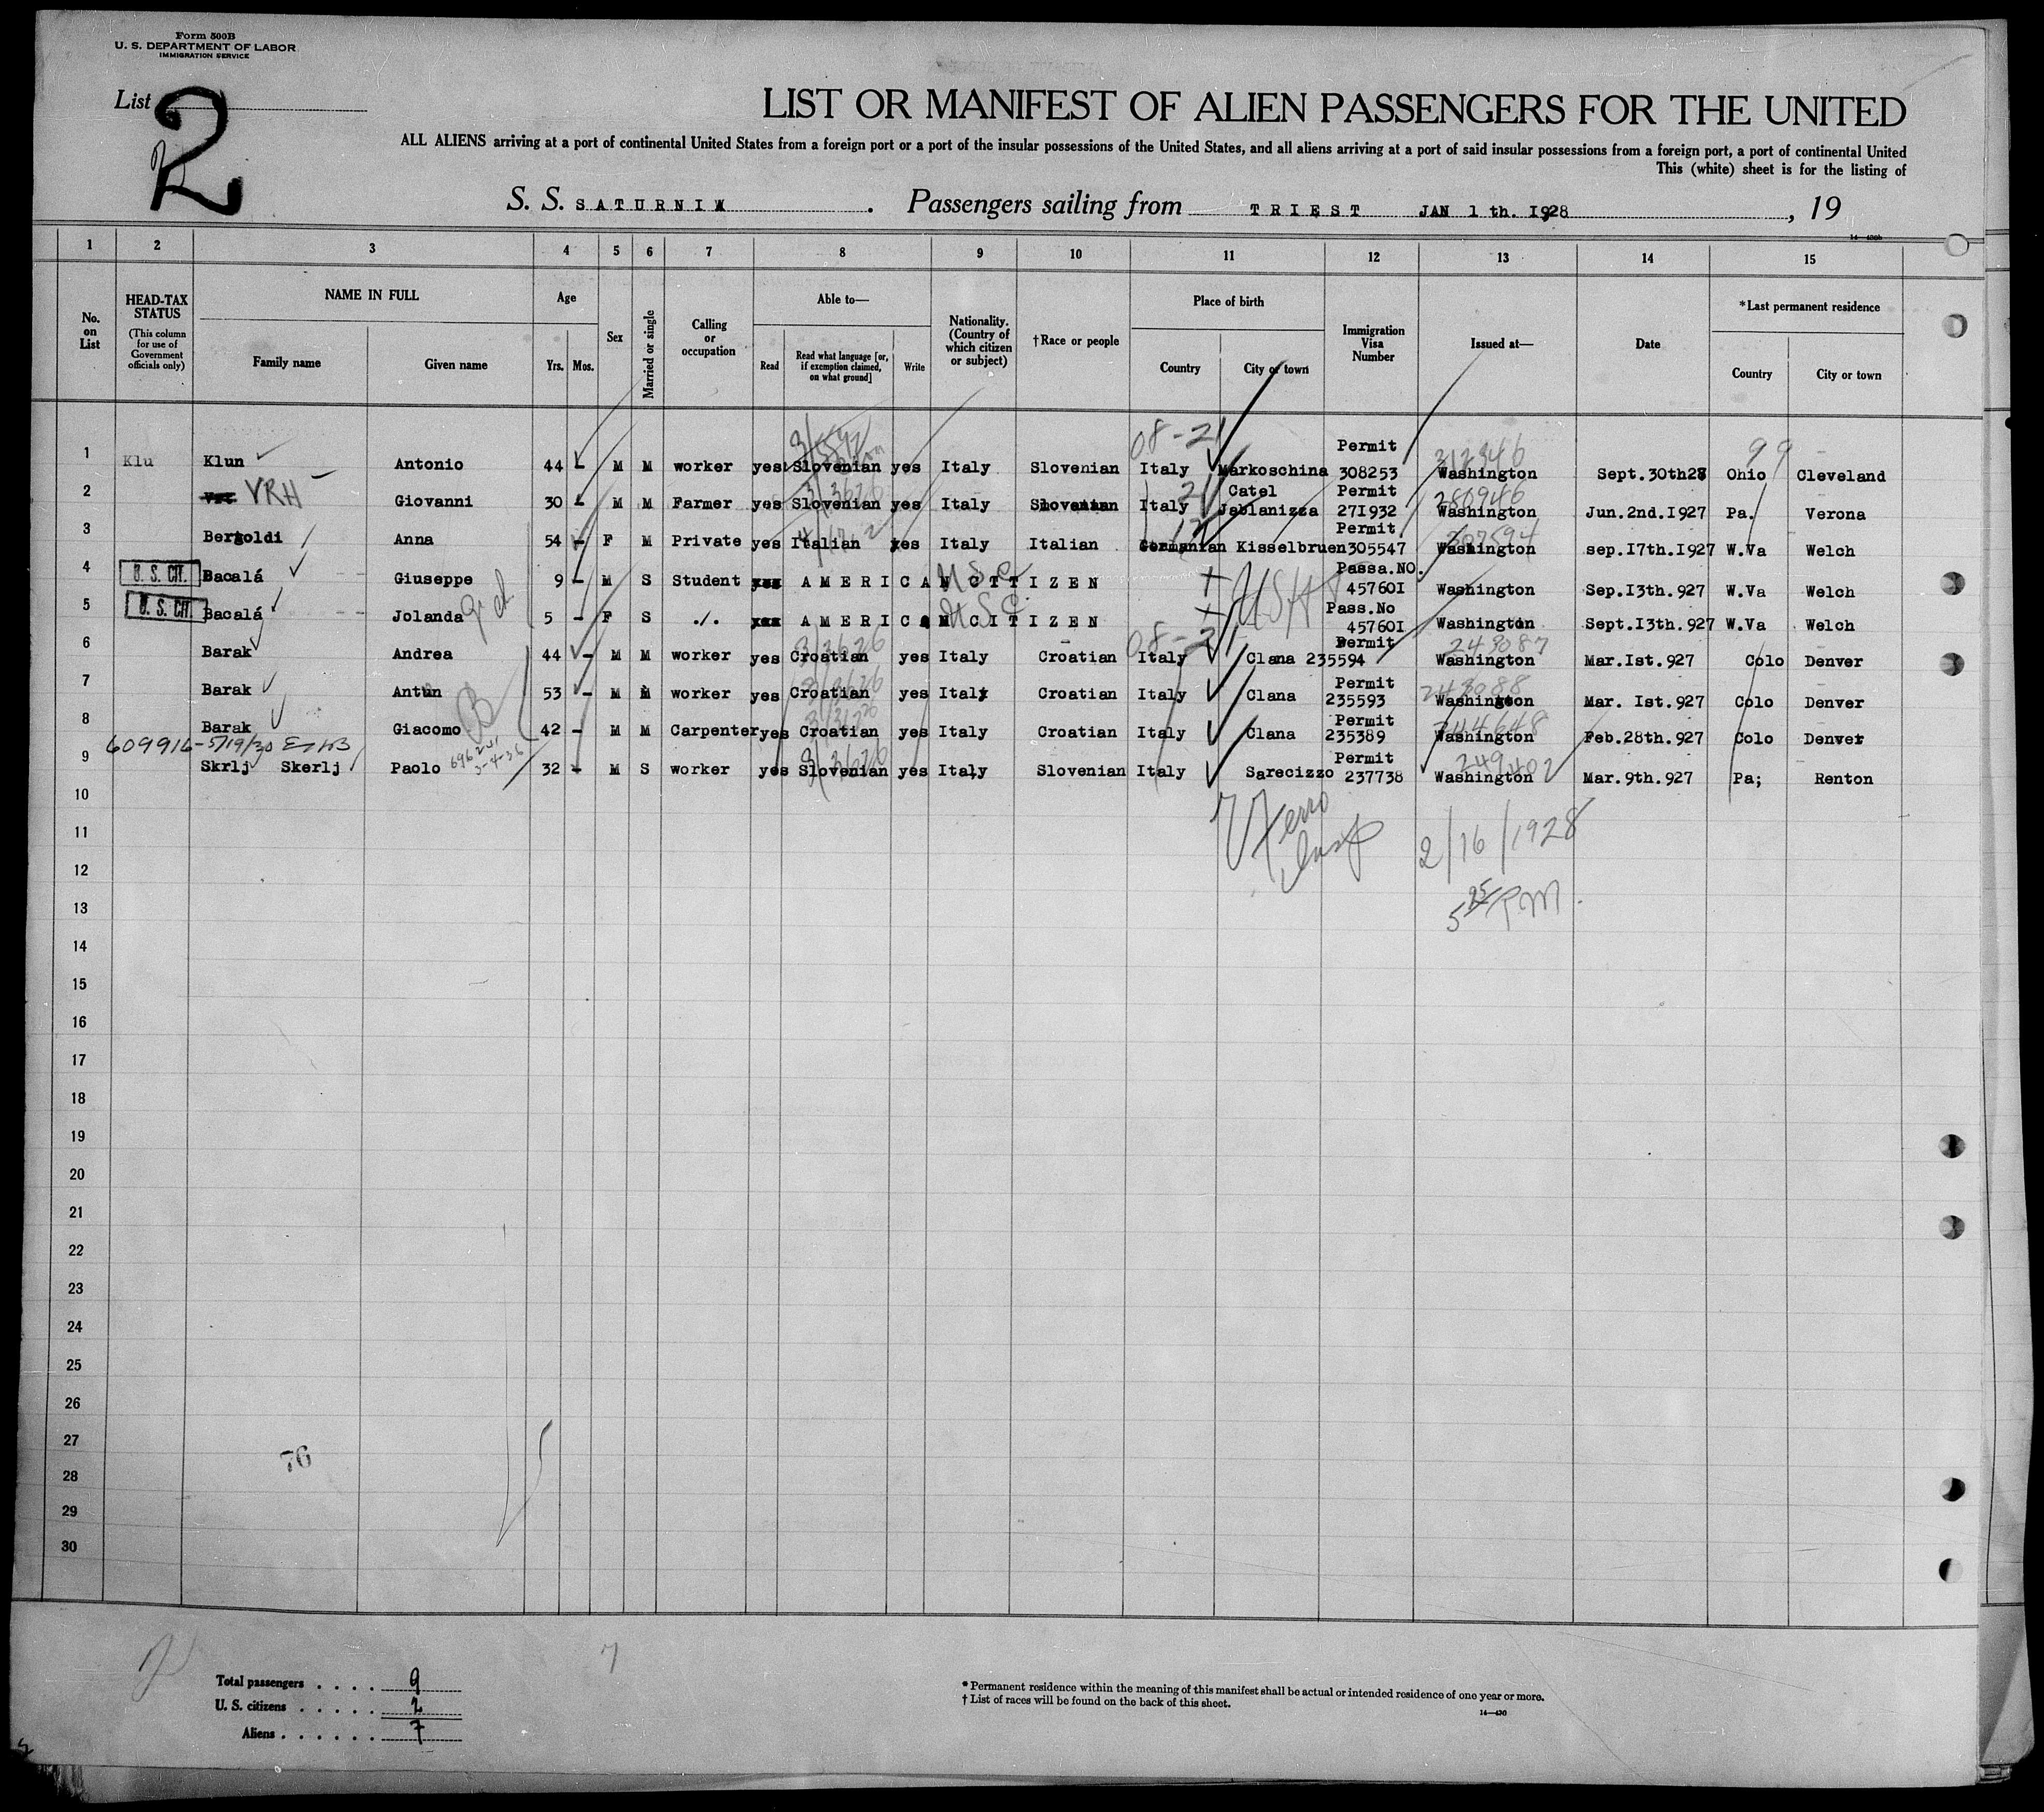 Form 500B
U. S. DEPARTMENT OF LABOR
IMMIGRATION SERVICE
List 2
LIST OR MANIFEST OF ALIEN PASSENGERS FOR THE UNITED
ALL ALIENS arriving at a port of continental United States from a foreign port or a port of the insular possessions of the United States, and all aliens arriving at a port of said insular possessions from a foreign port, a port of continental United
This (white) sheet is for the listing of
S. S. SATURNIA. Passengers sailing from TRIEST JAN 1 th. I928, 19
14—430b
1 2 3 4 5 6 7 8 9 10 11 12 13 14 15
No. on List
HEAD-TAX STATUS (This column for use of Government officials only)
NAME IN FULL Family name Given name
Age Yrs. Mos.
Sex
Married or single
Calling or occupation
Able to— Read Read what language [or, if exemption claimed, on what ground] Write
Nationality. (Country of which citizen or subject)
†Race or people
Place of birth Country City or town
Immigration Visa Number
Issued at—
Date
*Last permanent residence Country City or town
08-21 Permit 312346 99
1 Klu Klun Antonio 44 - M M worker yes Slovenian yes Italy Slovenian Italy Markoschina 308253 Washington Sept.30th28 Ohio Cleveland
2 VRH Giovanni 30 - M M Farmer yes Slovenian yes Italy Slovenian Italy Catel Jablanizza Permit 271932 280946 Washington Jun.2nd.I927 Pa. Verona
3 Bertoldi Anna 54 - F M Private yes Italian yes Italy Italian Germanian Kisselbruen Permit 305547 307594 Washington sep.I7th.I927 W.Va Welch
4 U. S. CIT. Bacalá Giuseppe 9 - M S Student AMERICAN CITIZEN USC Passa.NO. 45760I Washington Sep.I3th.927 W.Va Welch
5 U. S. CIT. Bacalá Jolanda 5 - F S ./. AMERICAN CITIZEN USC Pass.No 45760I Washington Sept.I3th.927 W.Va Welch
6 Barak Andrea 44 - M M worker yes Croatian yes Italy Croatian 08-21 Italy Clana Permit 235594 243087 Washington Mar.Ist.927 Colo Denver
7 Barak Antun 53 - M M worker yes Croatian yes Italy Croatian Italy Clana Permit 235593 243088 Washington Mar. Ist.927 Colo Denver
8 Barak Giacomo 42 - M M Carpenter yes Croatian yes Italy Croatian Italy Clana Permit 235389 244648 Washington Feb.28th.927 Colo Denver
609916-5/19/30
9 Skrlj Skerlj Paolo 32 - M S worker yes Slovenian yes Italy Slovenian Italy Sarecizzo Permit 237738 249402 Washington Mar.9th.927 Pa; Renton
10
11 2/16/1928
12
13 5 25 PM.
14
15
16
17
18
19
20
21
22
23
24
25
26
27 76
28
29
30
7
Total passengers . . . . 9
U. S. citizens . . . . . 2
Aliens . . . . . . 7
* Permanent residence within the meaning of this manifest shall be actual or intended residence of one year or more.
† List of races will be found on the back of this sheet.
14—430